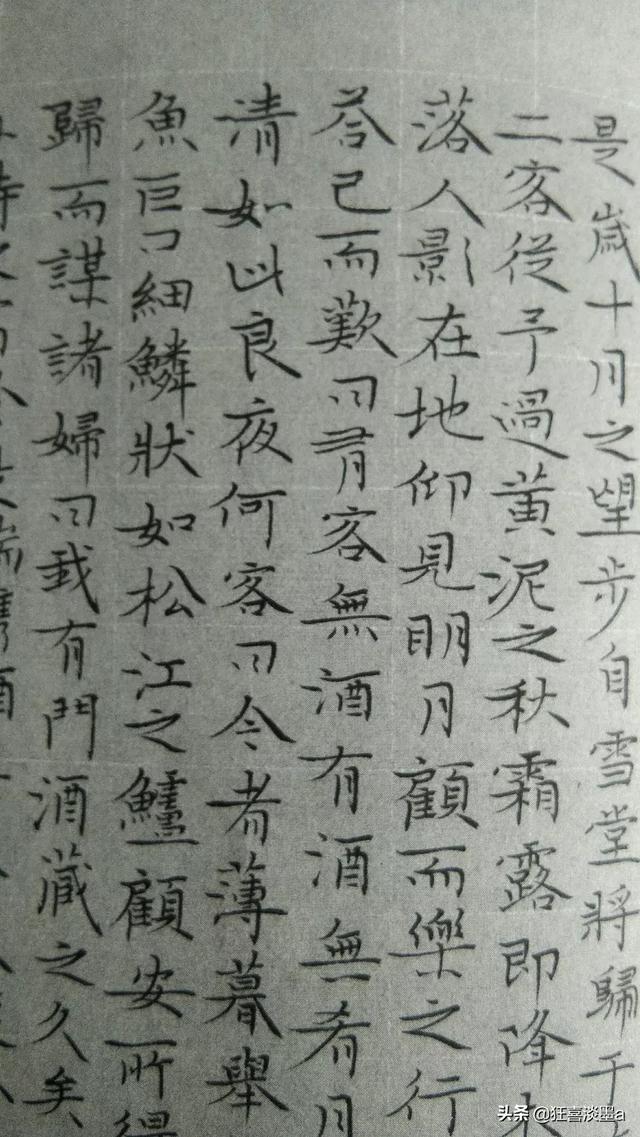 是歲十月之望步自雪堂將歸于
二客從予過黃泥之秋霜露即降
落人影在地仰見明月顧而樂之行
荅己而歎曰有客無酒有酒無肴月
清如此良夜何客曰今者薄暮舉
魚巨口細鱗狀如松江之鱸顧安所得
歸而謀諸婦曰我有門酒藏之久矣
头条 @狂喜淡墨a